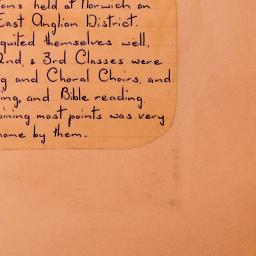 held at Norwich on
East Anglian District.
quited themselves well,
2nd, & 3rd Classes were
g and Choral Choirs, and
ing, and Bible reading
aining most points was very
home by them.